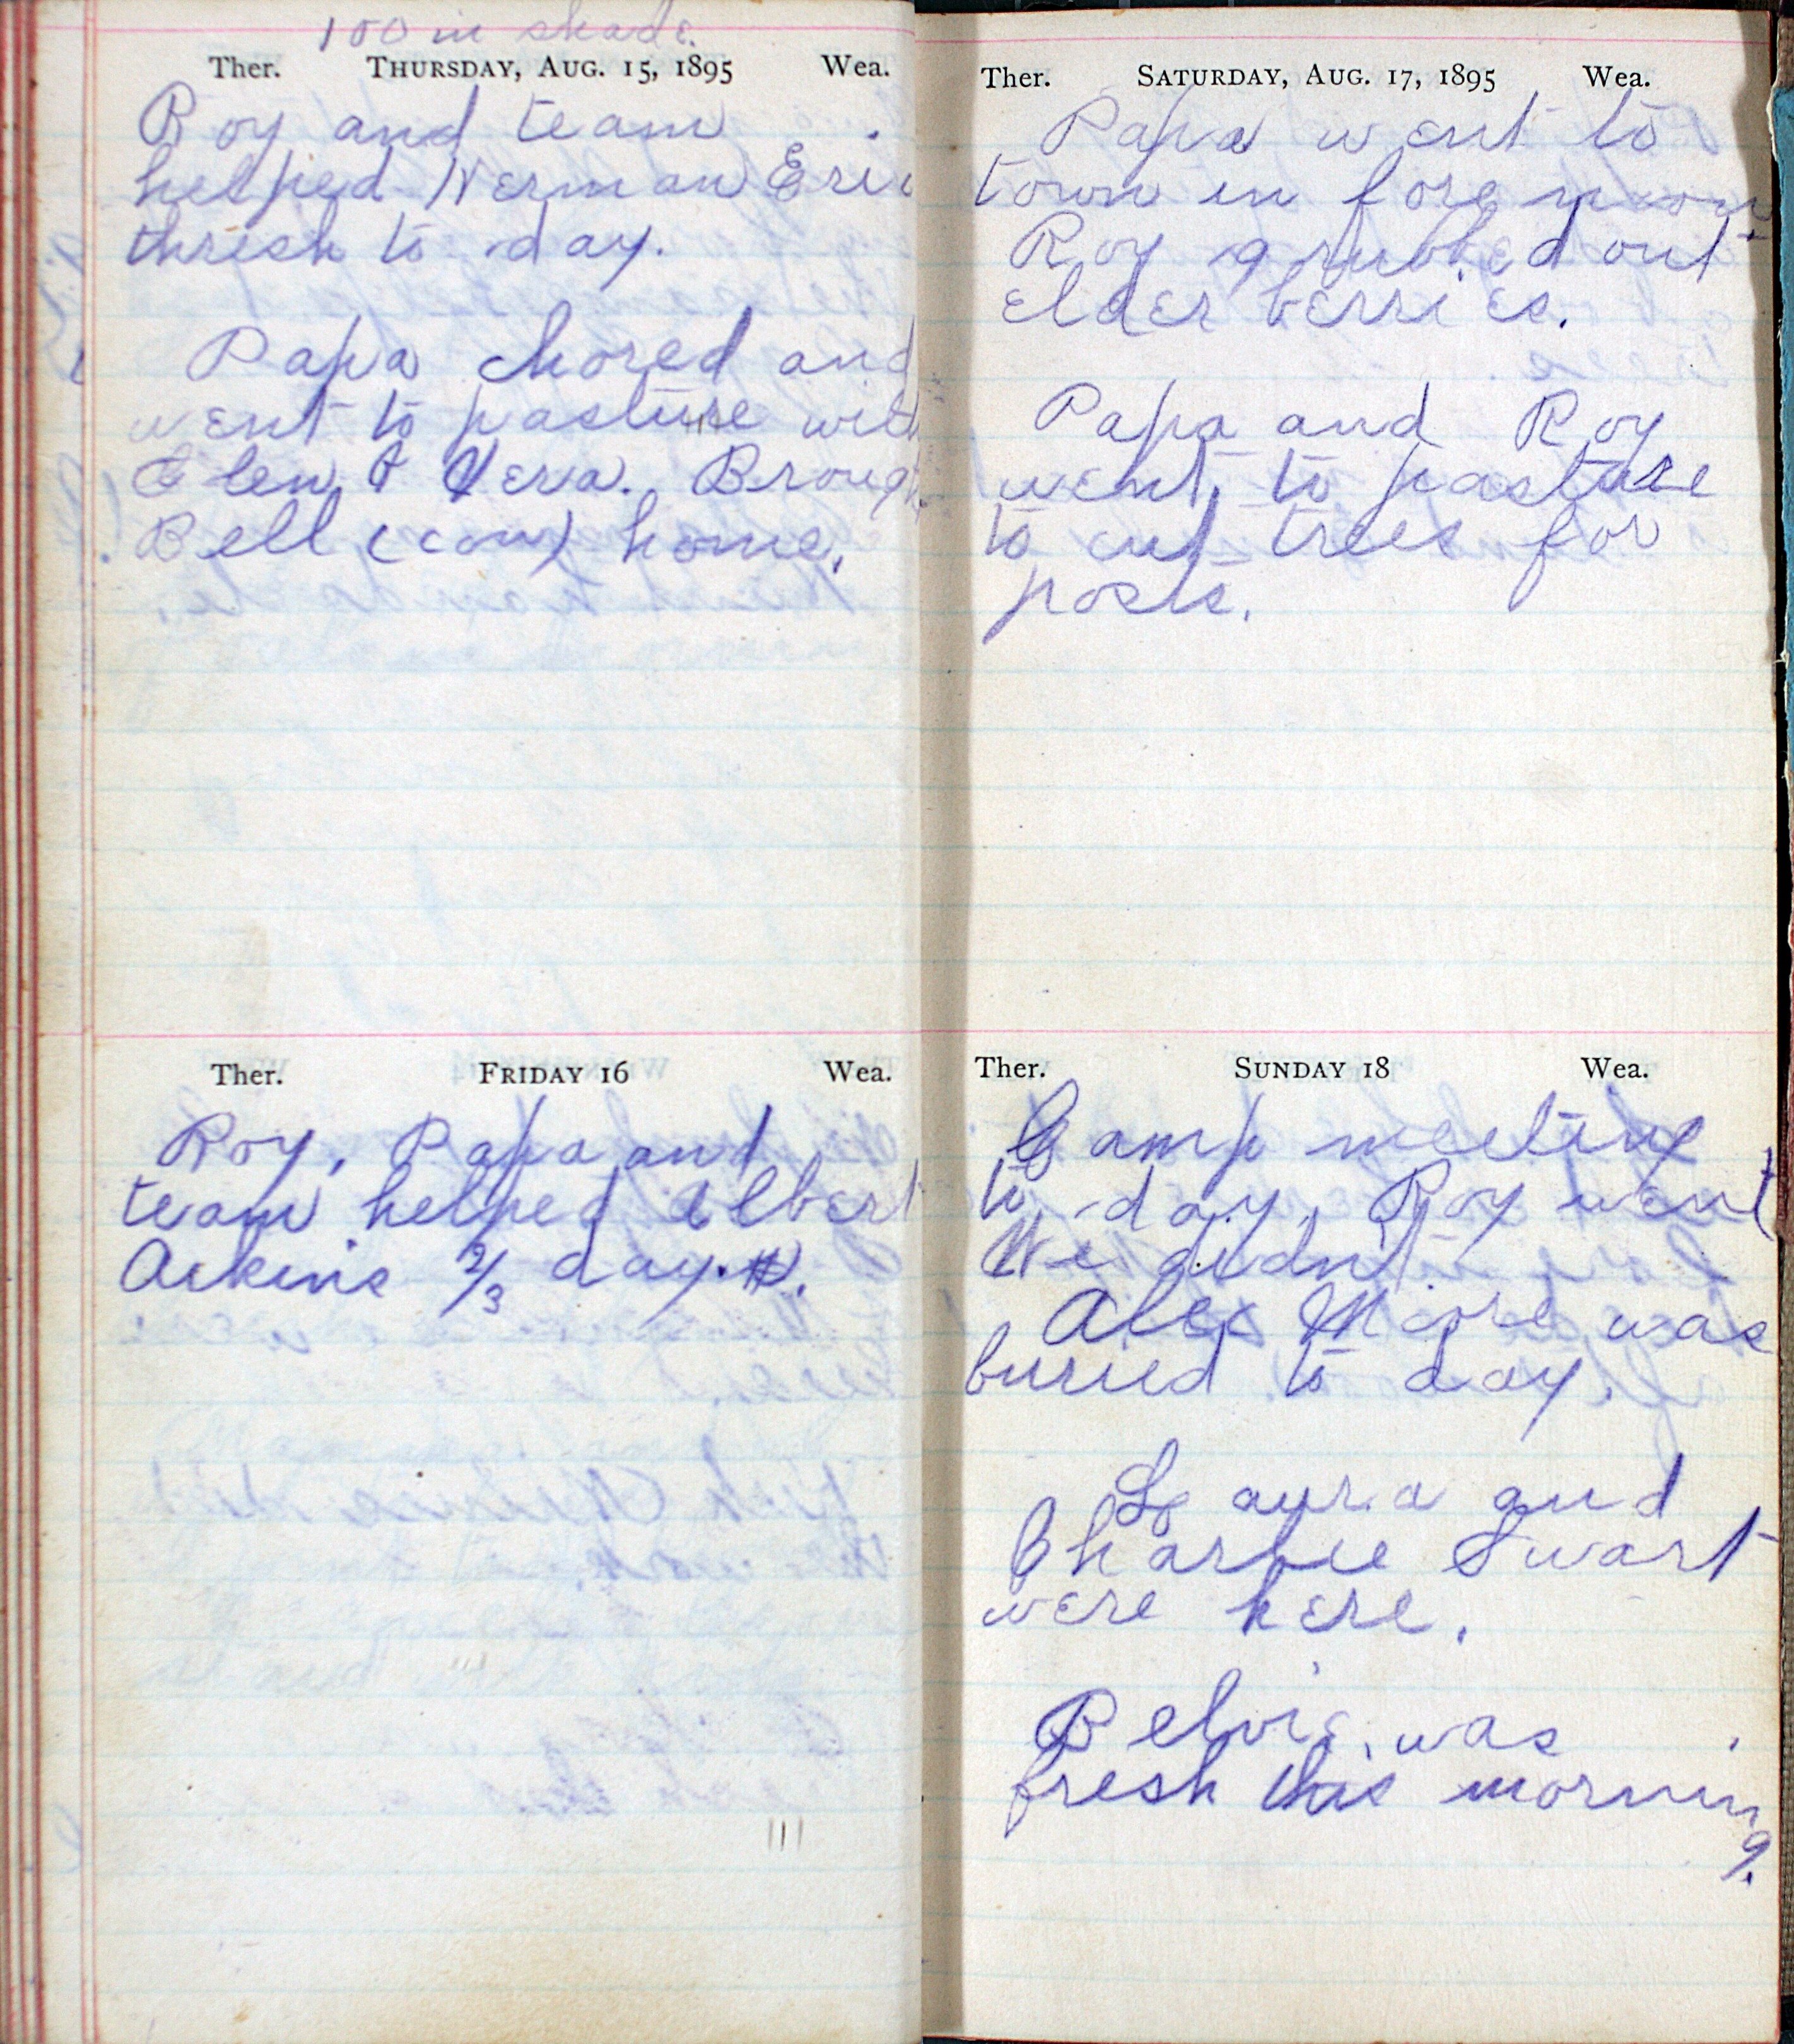 100 in shade.
Ther. Thursday, Aug. 15, 1895 Wea.
Roy and team
helped Herman
thresh to day.
Papa chored and
went to pasture with
Glen & Vera. Brough
Bell (cow) home.
Ther. Friday 16 Wea.
Roy, Papa and
team helped Albert
Askins 2/3 day.
Ther. Saturday, Aug. 17, 1895 Wea.
Papa went to
town in fore noon
Roy grubbed out
elder berries.
Papa and Roy
went to pasture
to cut trees for
posts.
Ther. Sunday 18 Wea.
Camp meeting
to-day, Roy went
We didnt.
Alec Moore was
buried to day.
Laura and
Charlie Swart
were here.
was
fresh this mornin
g.